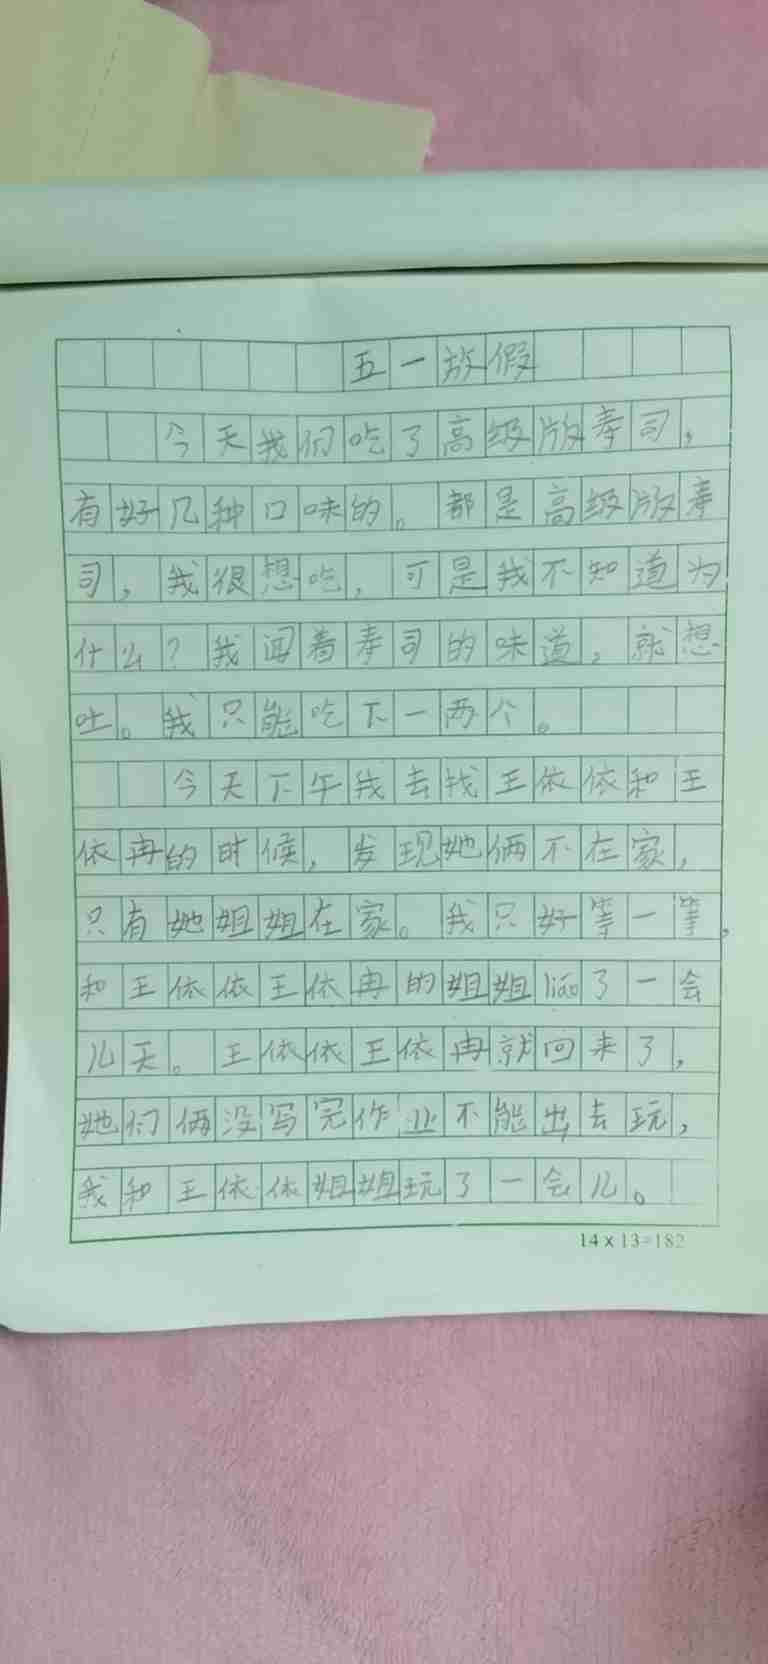 五一放假
今天我们吃了高级版寿司，
有好几种口味的。都是高级版寿
司，我很想吃，可是我不知道为
什么？我闻着寿司的味道，就想
吐。我只能吃下一两个。
今天下午我去找王依依和王
依冉的时候，发现她俩不在家，
只有她姐姐在家。我只好等一等，
和王依依王依冉的姐姐liáo了一会
儿天。王依依王依冉就回来了，
她们俩没写完作业不能出去玩，
我和王依依姐姐玩了一会儿。
14×13=182